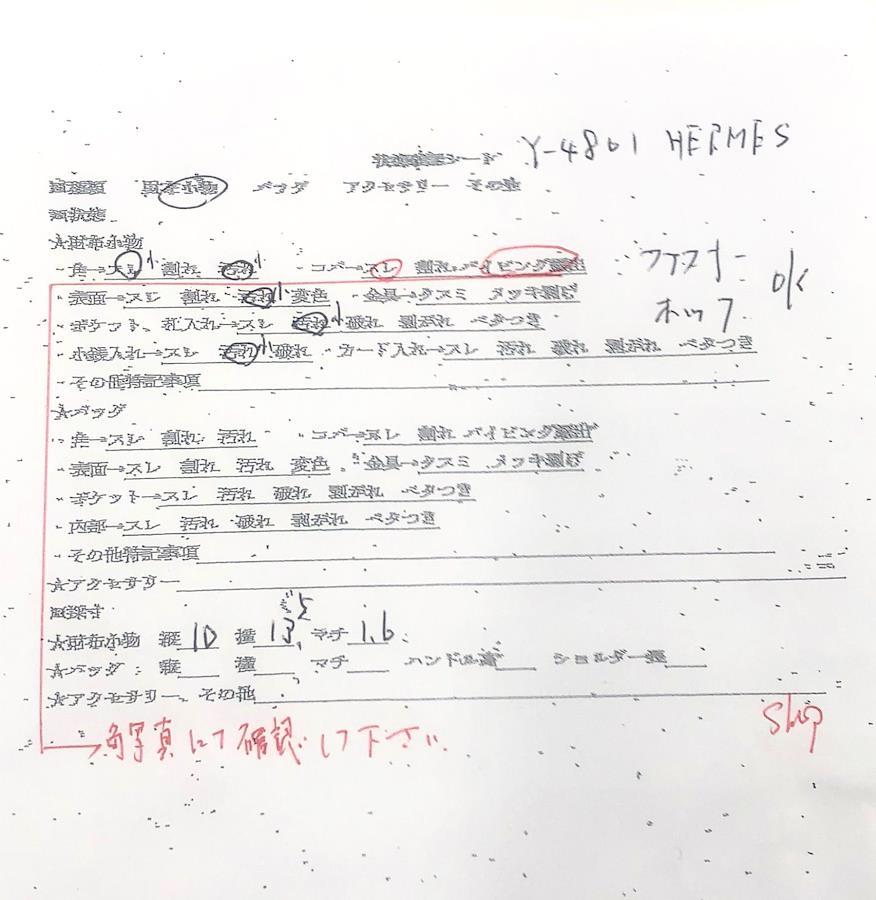 状態確認シート Y-4801 HERMES
財布小物 バッグ アクセサリー その他
★財布小物
・角→スレ小 割れ 汚れ小 ・コバ→スレ 割れ パイピング露出 ファスナー OK
・表面→スレ 割れ 汚れ小 変色 ・金具→クスミ メッキ剥げ ホック
・ポケット、札入れ→スレ 汚れ小 破れ 剥がれ ベタつき
・小銭入れ→スレ 汚れ小 破れ ・カード入れ→スレ 汚れ 破れ 剥がれ ベタつき
・その他特記事項
★バッグ
・角→スレ 割れ 汚れ ・コバ→スレ 割れ パイピング露出
・表面→スレ 割れ 汚れ 変色 ・金具→クスミ メッキ剥げ
・ポケット→スレ 汚れ 破れ 剥がれ ベタつき
・内部→スレ 汚れ 破れ 剥がれ ベタつき
・その他特記事項
★アクセサリー
★財布小物 縦 10 横 13.5 マチ 1.6
★バッグ 縦 横 マチ ハンドル高 ショルダー長
★アクセサリー、その他
→角写真にて確認して下さい